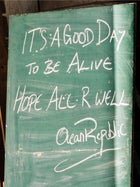 IT'S A GOOD DAY
TO BE ALIVE
HOPE ALL R WELL
Ocean Republic